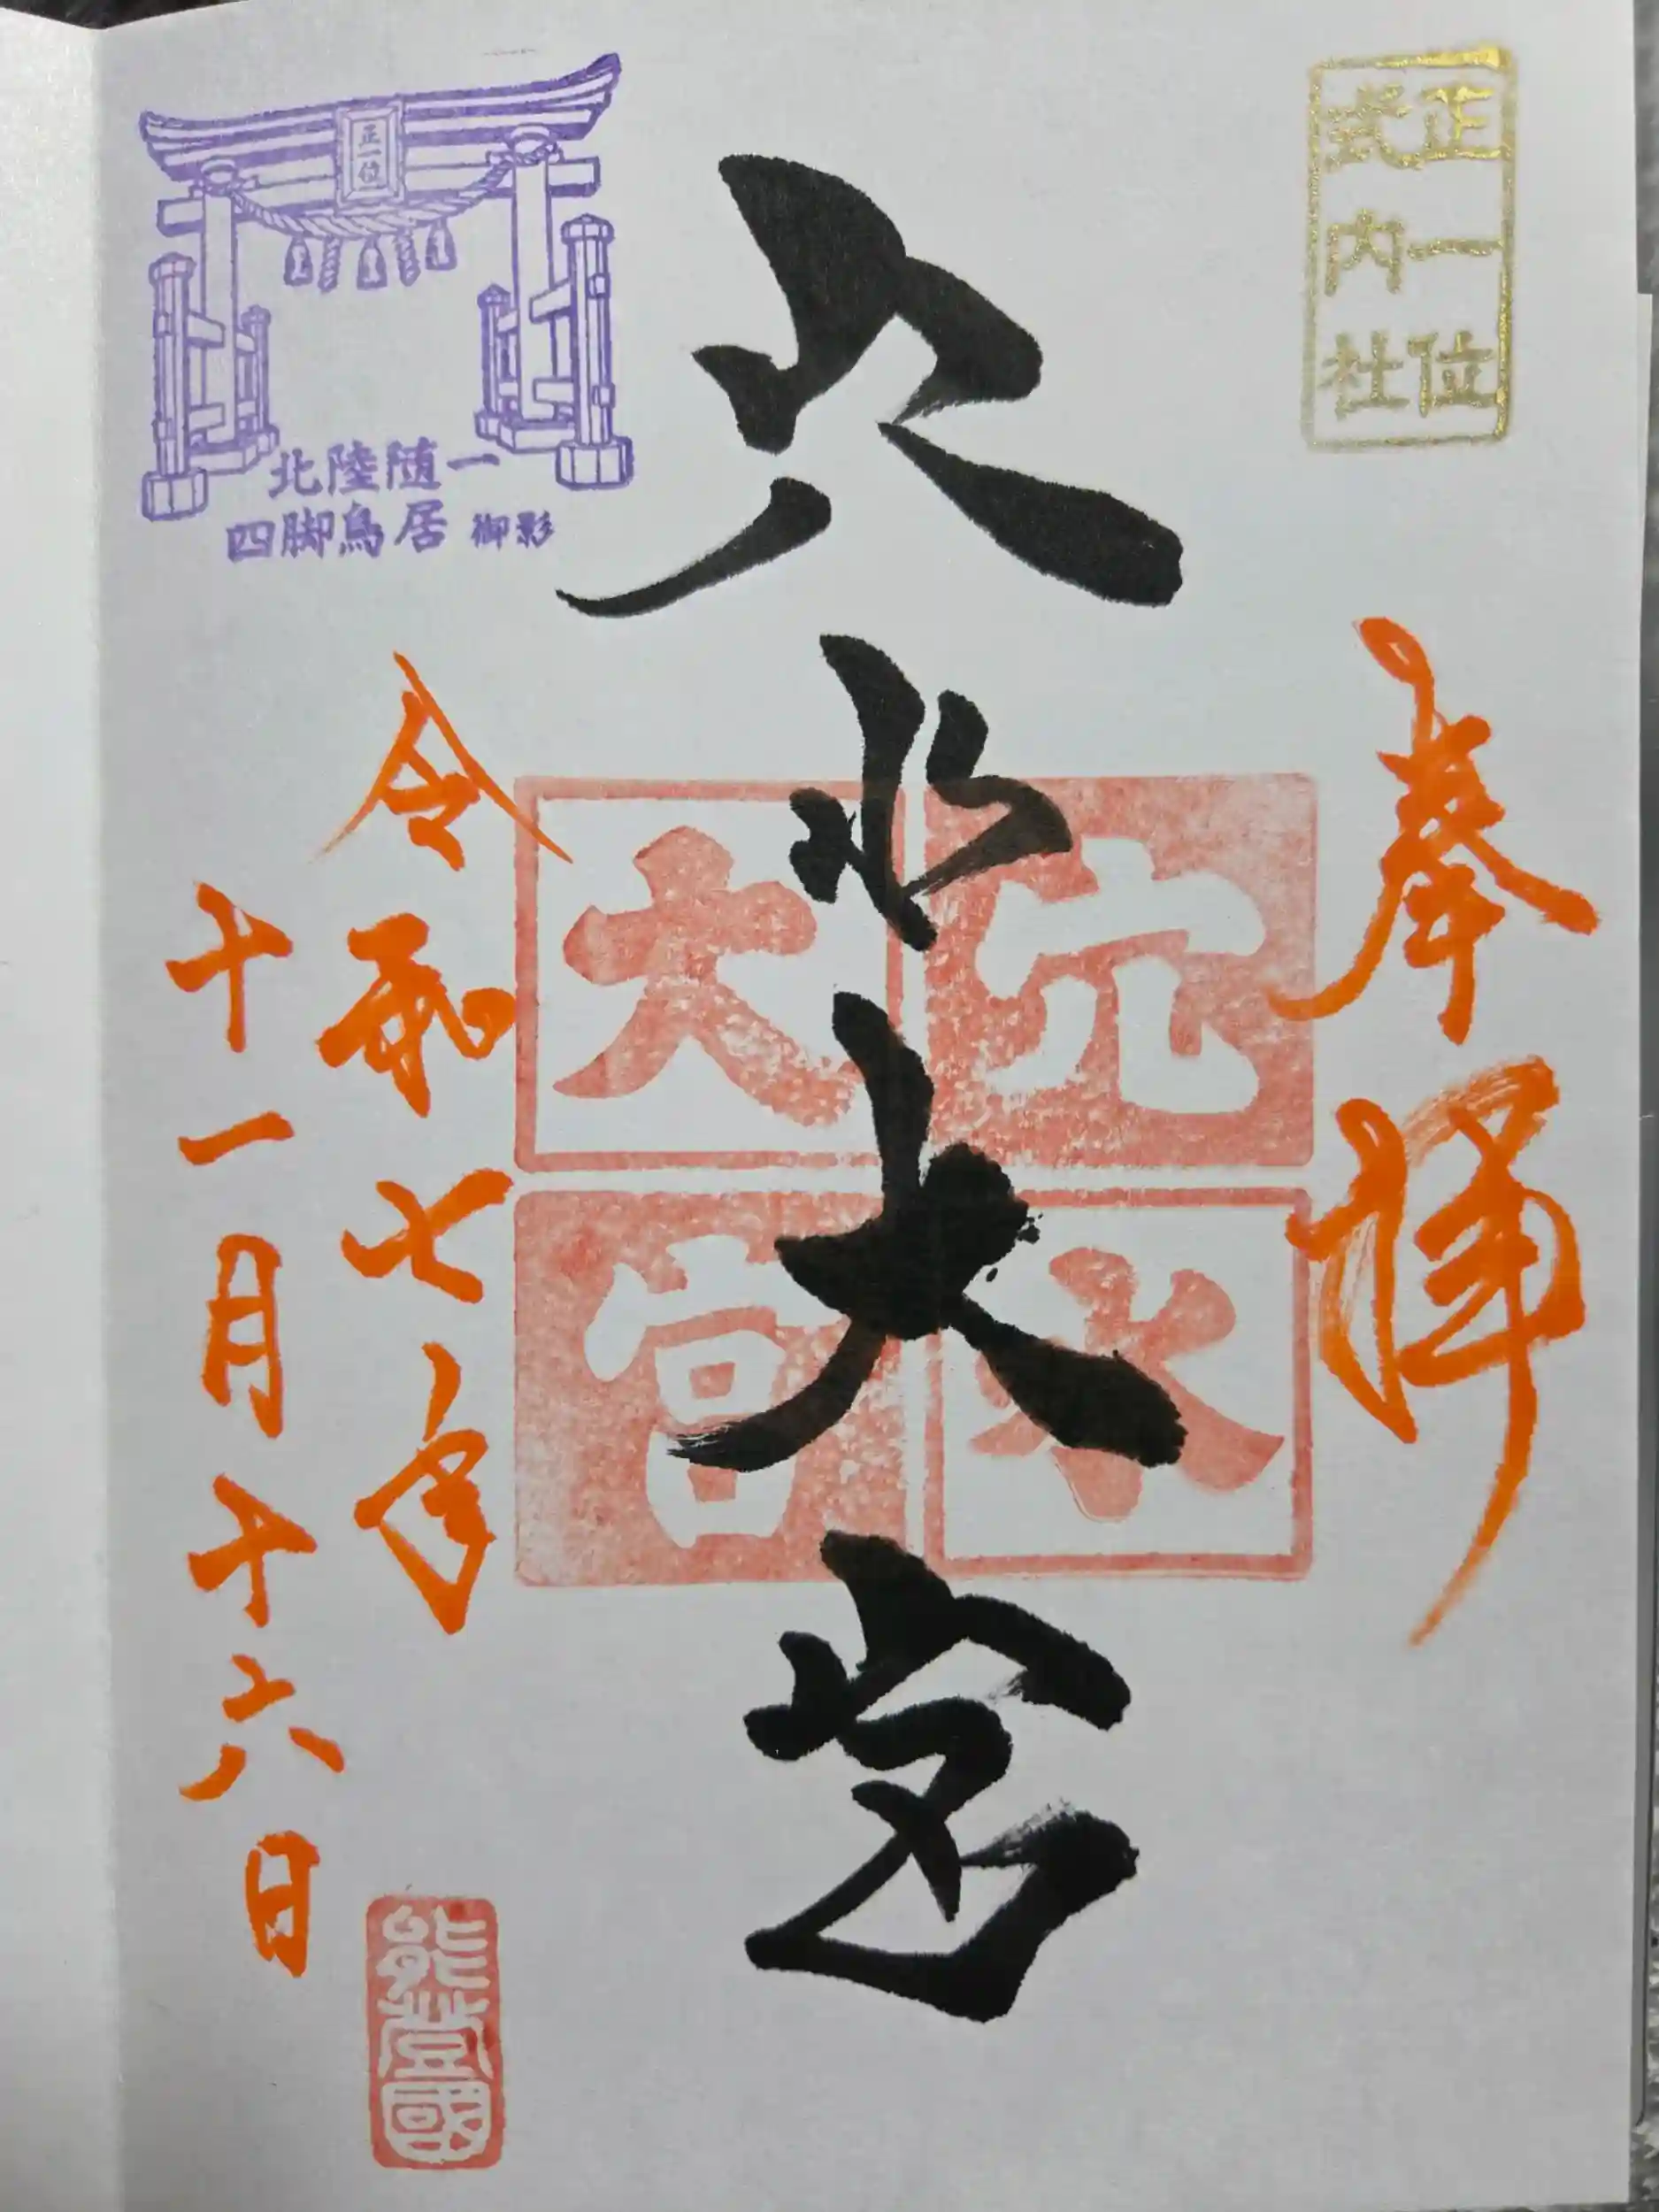 正一位
式内社
奉拝
穴水大宮
穴水大宮
正一位
北陸随一
四脚鳥居 御影
令和七年
十一月十六日
能登國